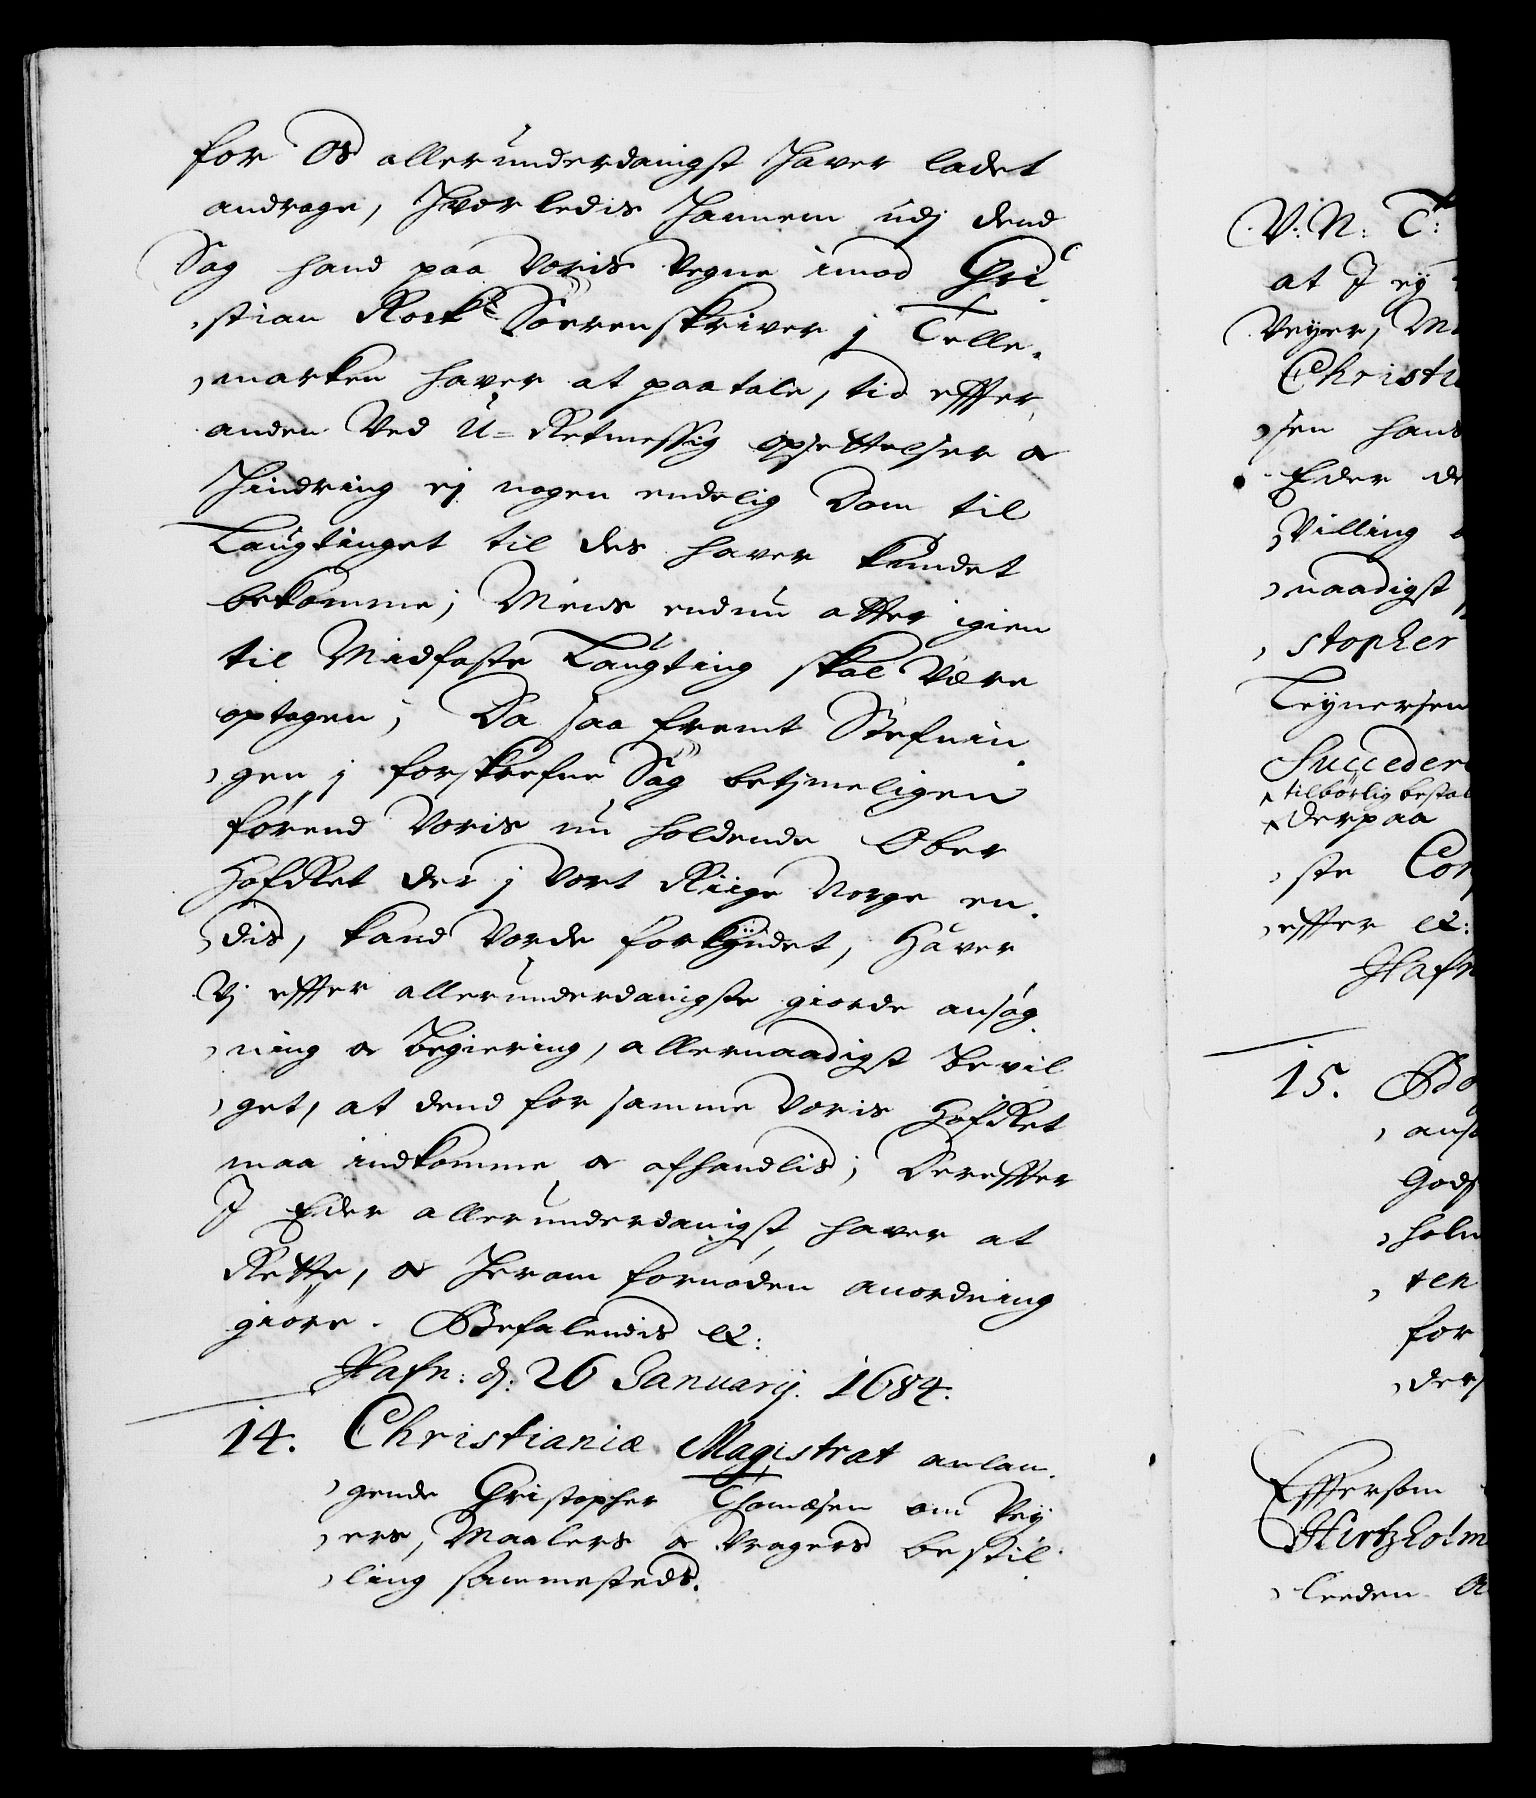 for Os allerunderdanigst haver ladet
andrage, hvorledis hannem udj dend
Sag hand paa Voris Vegne imod Chri-
stian Rock Sorenskriver j Telle-
marken haver at paatale, tid effter
anden Ved U-Retmessig opsettelser oc
hindring ej nogen endelig Dom til
Laugtinget til des haver kundet
bekomme; Mens endnu atter igien
til Midfaste Laugting skal være
optagen; Da saa fremt Stefnin-
gen j forskrefne Sag betjmeligen
førend Voris nu holdende Ober
HofRet der j Vort Riige Norge en-
dis, kand Vorde forkyndet, Haver
Vj effter allerunderdanigste giorde ansøg-
ning oc begiering, allernaadigst bevil-
get, at dend for samme Voris HofRet
maa indkomme oc afhandlis; Dereffter
I Eder allerunderdanigst haver at
Rette, oc herom fornøden anordning
giøre. Befalendis etc:
Hafn: d: 26 Januarij. 1684.
14. Christianiæ Magistrat anlan-
gende Christopher Thomæsen om Vey-
ers, Maalers oc Vragers bestil-
ling sammesteds.
V: N: T:
at I ej
Veyer, M
Christi
sen hans
Eder de
Villing
naadigst
stopher
Teynersen
Succedere
tilbørlig bestal
derpaa
ste Con
effter etc:
Hafn
15.
ans
Gods
holm
ten
for
ders
Effersom
Hirtzholm
leeden